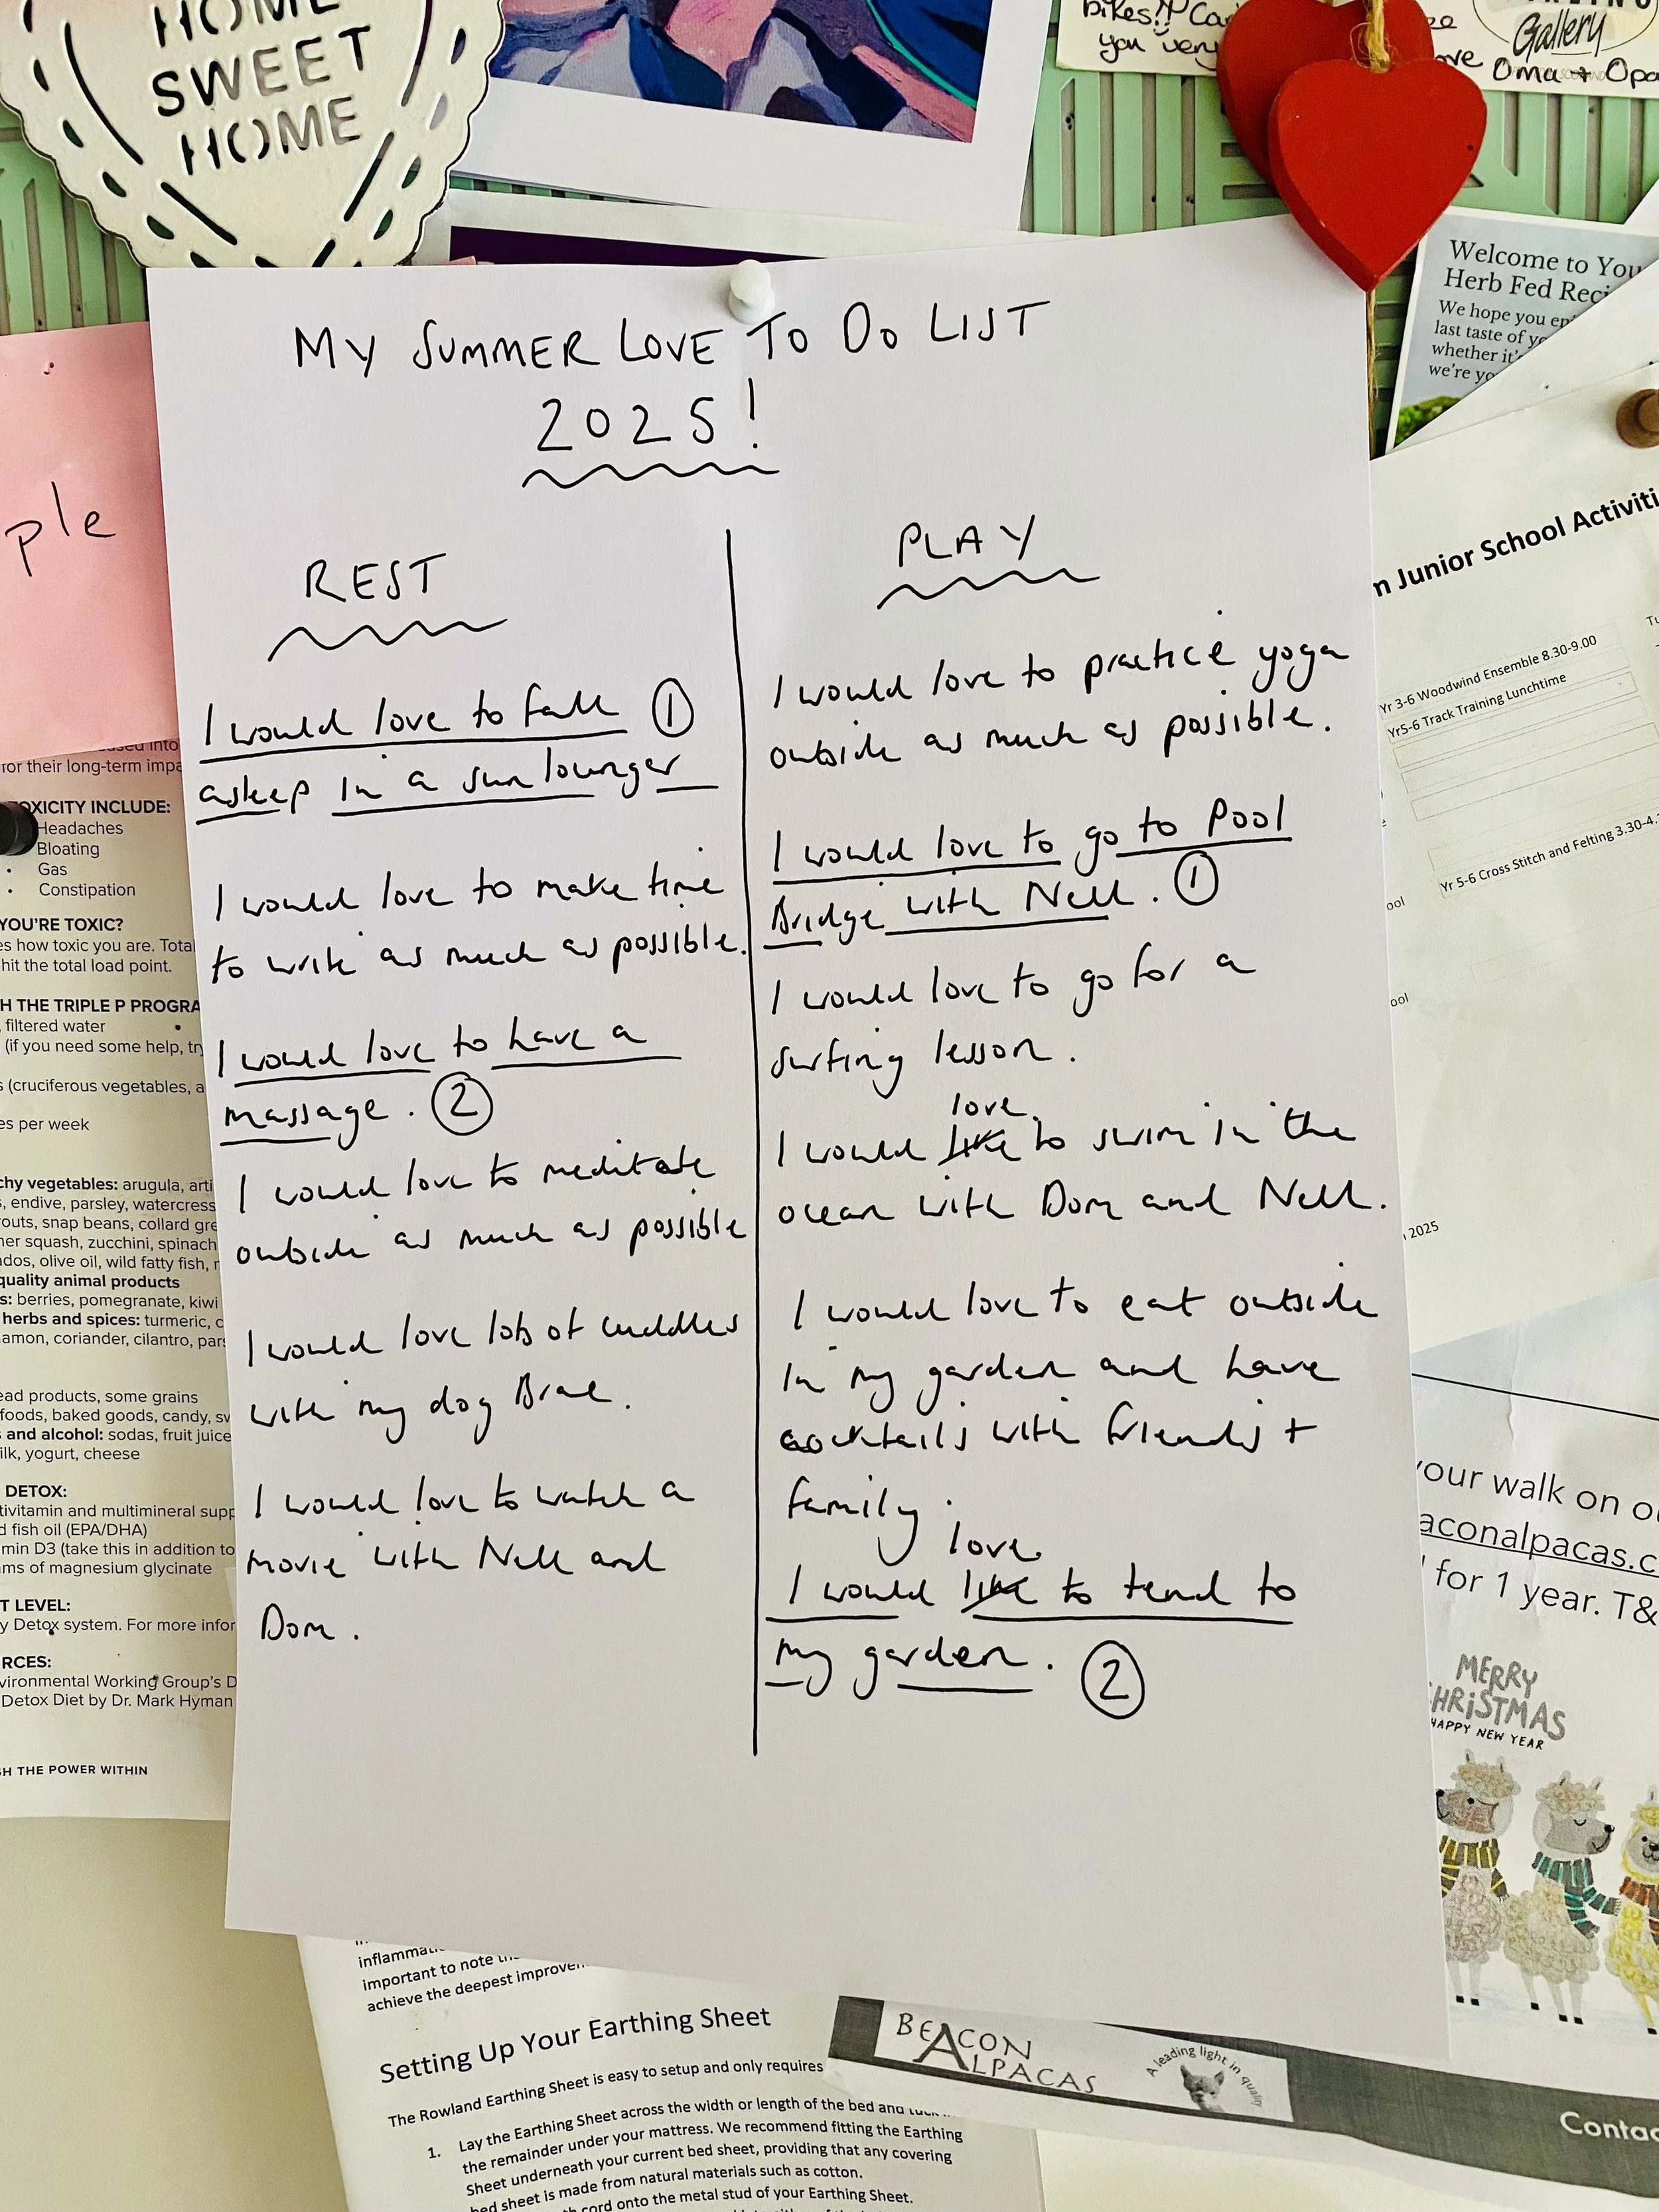 HOME
SWEET
HOME
bikes!!
you very
Gallery
Oma + Opa
Welcome to You
Herb Fed Reci
We hope you en
last taste of yo
whether it's
we're yo
MY SUMMER LOVE TO DO LIST
2025!
REST
I would love to fall ①
asleep in a sun lounger
I would love to make time
to write as much as possible.
I would love to have a
massage. ②
I would love to meditate
outside as much as possible
I would love lots of cuddles
with my dog Brae.
I would love to watch a
movie with Nell and
Dom.
PLAY
I would love to practice yoga
outside as much as possible.
I would love to go to Pool
Bridge with Nell. ①
I would love to go for a
surfing lesson.
love
I would like to swim in the
ocean with Dom and Nell.
I would love to eat outside
in my garden and have
cocktails with friends +
family.
love
I would like to tend to
my garden. ②
ple
for their long-term impa
OXICITY INCLUDE:
Headaches
Bloating
• Gas
• Constipation
YOU'RE TOXIC?
es how toxic you are. Total
hit the total load point.
H THE TRIPLE P PROGRA
filtered water
(if you need some help, try
s (cruciferous vegetables, a
es per week
chy vegetables: arugula, arti
s, endive, parsley, watercress
outs, snap beans, collard gre
mer squash, zucchini, spinach
dos, olive oil, wild fatty fish, n
quality animal products
s: berries, pomegranate, kiwi
herbs and spices: turmeric, c
amon, coriander, cilantro, pars
ead products, some grains
foods, baked goods, candy, sw
s and alcohol: sodas, fruit juice
ilk, yogurt, cheese
DETOX:
tivitamin and multimineral supp
d fish oil (EPA/DHA)
min D3 (take this in addition to
ms of magnesium glycinate
T LEVEL:
y Detox system. For more infor
RCES:
vironmental Working Group's D
Detox Diet by Dr. Mark Hyman
SH THE POWER WITHIN
n Junior School Activiti
Yr 3-6 Woodwind Ensemble 8.30-9.00
Yr5-6 Track Training Lunchtime
Yr 5-6 Cross Stitch and Felting 3.30-4.
ool
ool
2025
your walk on o
aconalpacas.c
for 1 year. T&
MERRY
CHRISTMAS
HAPPY NEW YEAR
inflamma
important to note
achieve the deepest improve
Setting Up Your Earthing Sheet
The Rowland Earthing Sheet is easy to setup and only requires
1. Lay the Earthing Sheet across the width or length of the bed and tuck
the remainder under your mattress. We recommend fitting the Earthing
Sheet underneath your current bed sheet, providing that any covering
bed sheet is made from natural materials such as cotton.
cord onto the metal stud of your Earthing Sheet.
BEACON
ALPACAS
A leading light in quality
Contac